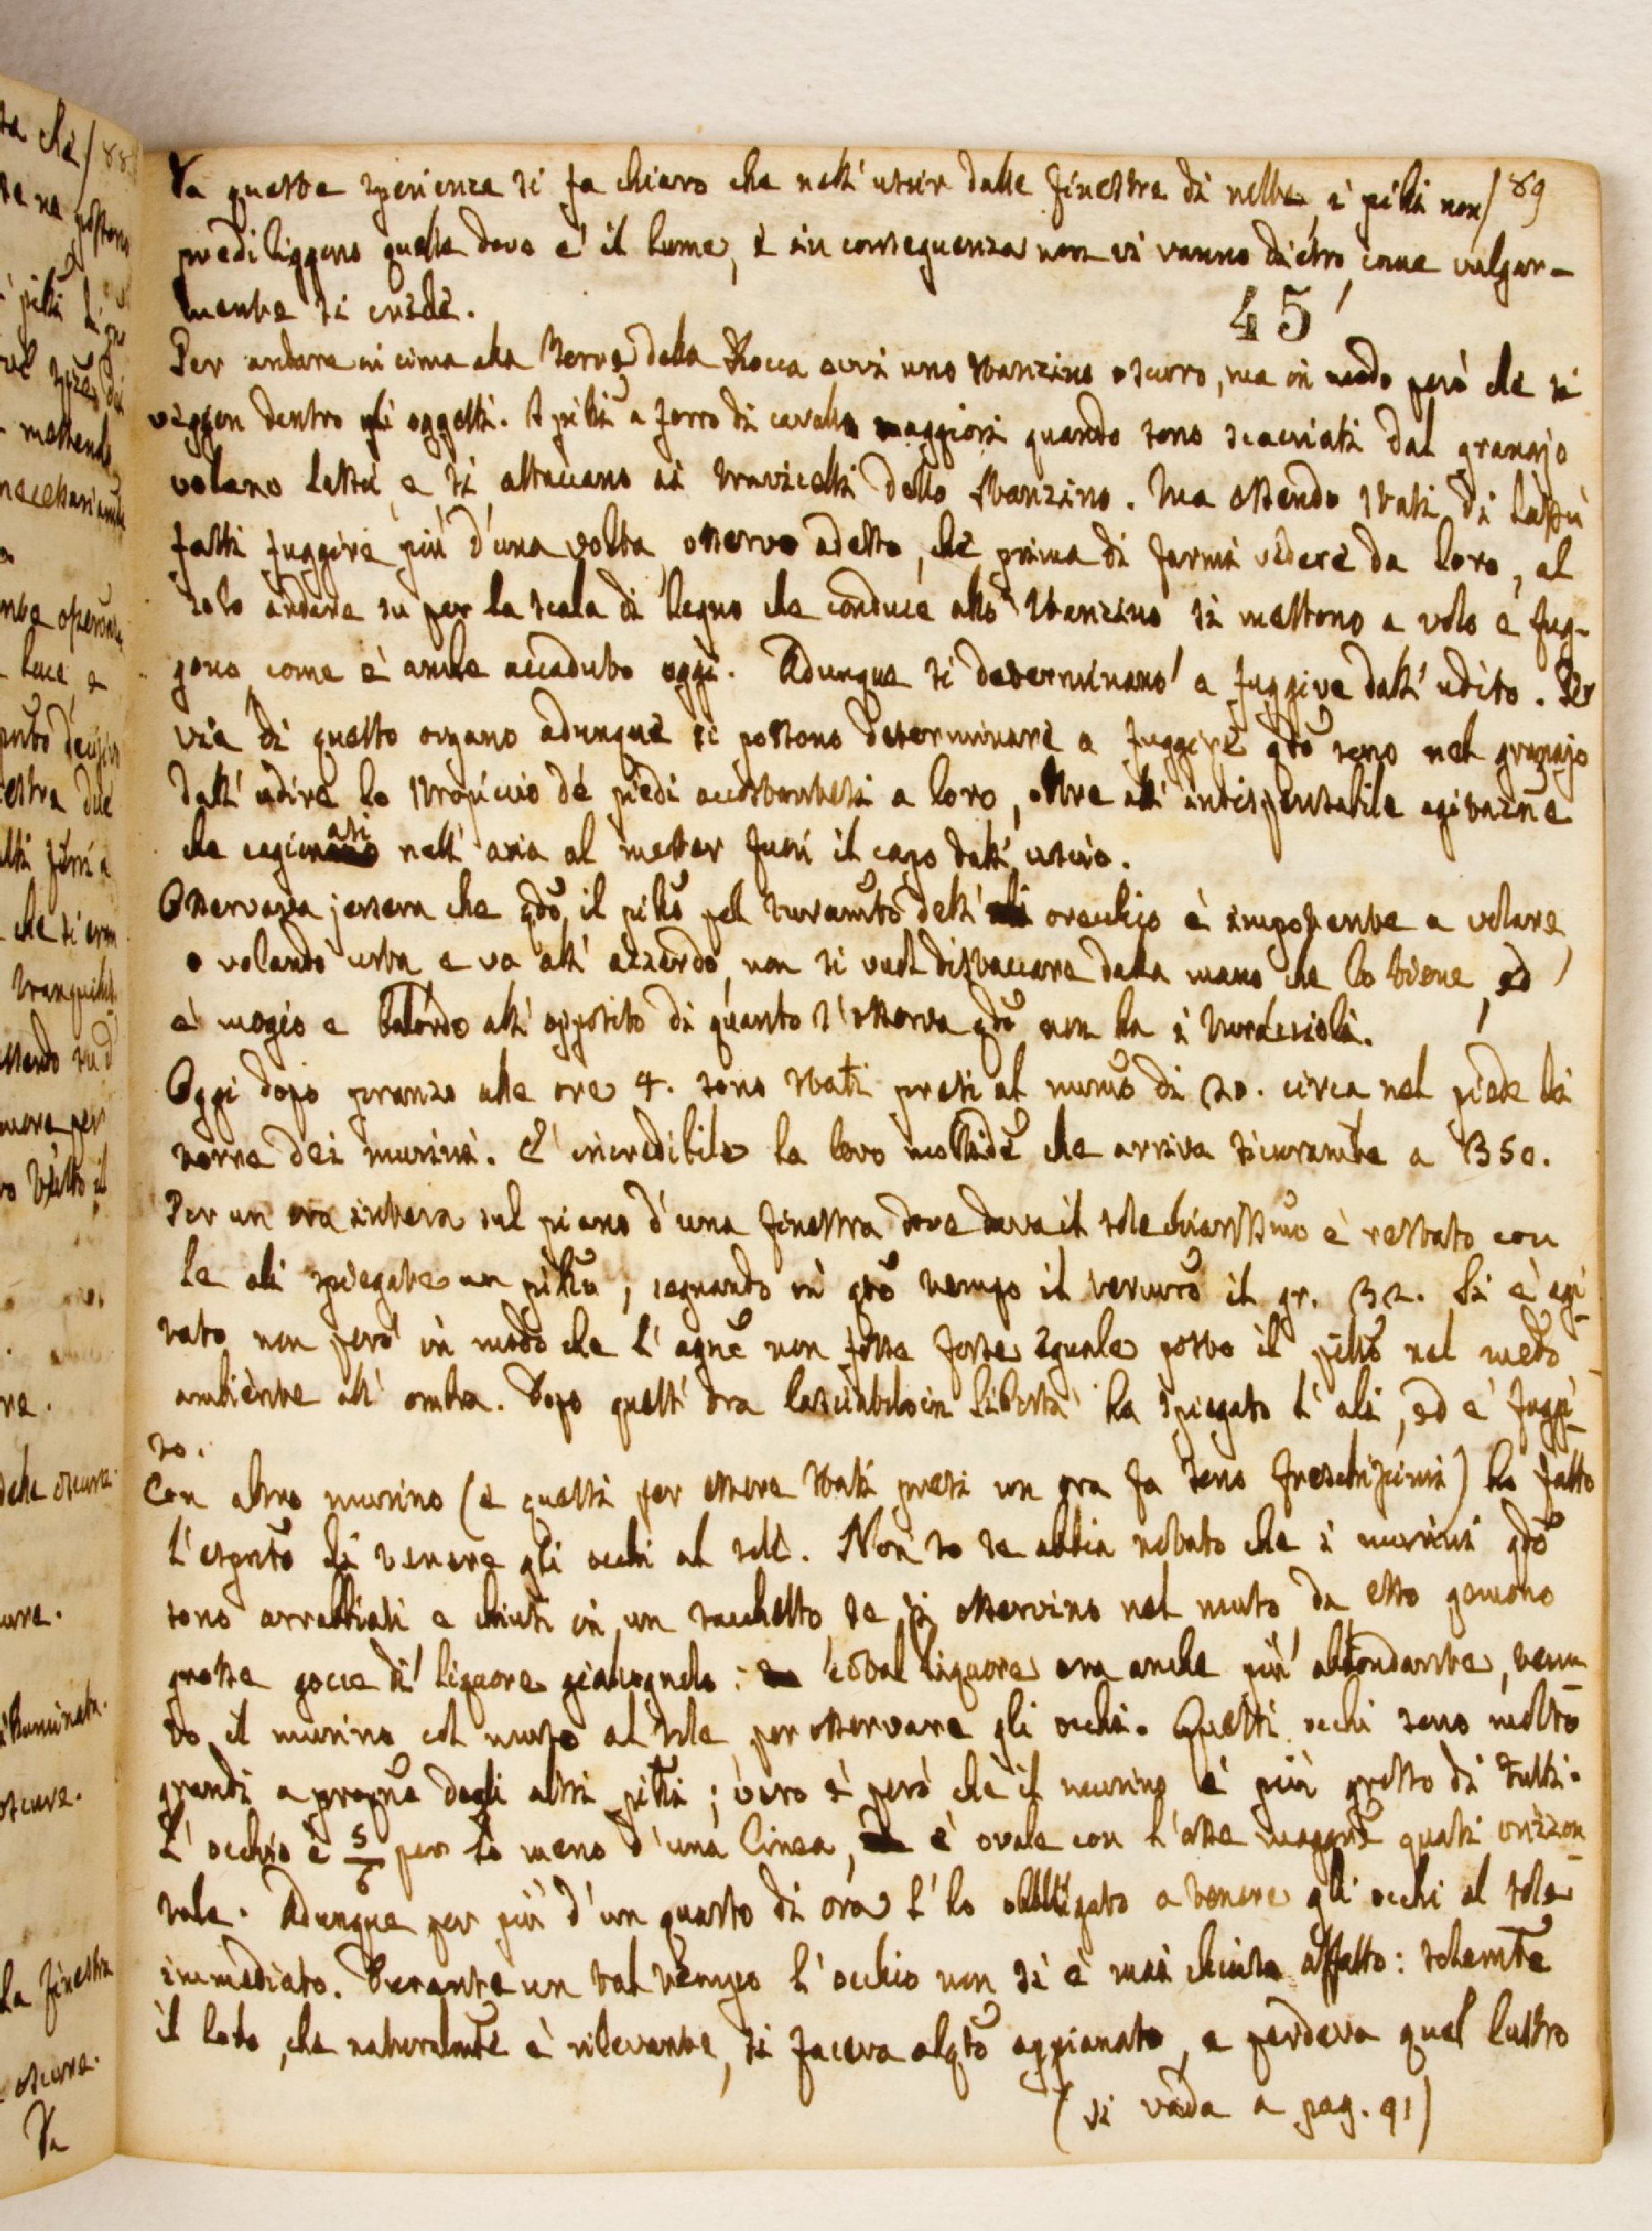 Da queste sperienze si fa chiaro che nell' uscir dalle finestre di nelle i pilli non / 89
prediliggono quella dove è il lume, e in conseguenza non vi vanno dietro, come vulgar-
mente si crede.
45
Per andare in cima alla Torre della Rocca avvi uno stanzino oscuro, ma in modo però che si
veggon dentro gli oggetti. I pilli a ferro di cavallo maggiori quando sono scacciati dal granajo
volano lassù, e si attaccano ai travicelli dello stanzino. Ma essendo stati di lassù
fatti fuggire più d'una volta, osservo adesso, che prima di farmi vedere da loro, al
solo andare su per la scala di legno che conduce allo stanzino si mettono a volo e fug-
gono come è anche accaduto oggi. Adunque si determinano a fuggire dall' udito. Per
via di questo organo adunque si possono determinare a fuggire qdo sono nel granajo
dall' udire lo stropiccio de' piedi accostantesi a loro, oltre all' indispensabile agitazne
che cagionasi nell' aria al metter fuori il capo dall' uscio.
Osservava jersera che qdo il pillo pel turamto dell' orecchio è impotente a volare
o volando urta e va all' azzardo, non si vuol distaccare dalla mano che lo tiene, ed
è mogio e balordo all' opposito di quanto s' osserva qdo non ha i turaccioli.
Oggi dopo pranzo alle ore 4. sono stati presi al numo di 20. circa nel piede la
torre dei murini. È incredibile la loro moltide che arriva sicuramte a 350.
Per un ora intera sul piano d'una finestra dove dava il sole chiarissimo è restato con
le ali spiegate un pillo, segnando in qto tempo il termro il gr. 32. Si è agi-
tato non però in modo che l' agne non fosse forse eguale posto il pillo nel medo
ambiente all' ombra. Dopo quell' ora lasciatolo in libertà ha spiegato l' ali, ed è fuggi-
to.
Con altro murino (e questi per essere stati presi un ora fa sono freschissimi) ho fatto
l' espmto di tenere gli occhi al sole. Non so se abbia notato che i murini qdo
sono arrabbiati e chiusi in un sacchetto se si osservino nel muso, da esso gemono
grosse gocce di liquore giallognolo: cotal liquore era anche più abbondante, tenu-
to il murino col muso al sole per osservare gli occhi. Questi occhi sono molto
grandi a propne degli altri pilli; vero è però che il murino è più grosso di tutti.
L' occhio è 5/6 per lo meno d' una linea, è ovale con l' asse maggre quasi orizzon-
tale. Adunque per più d' un quarto di ora l' ho obbligato a tenere gli occhi al sole
immediato. Durante un tal tempo l' occhio non si è mai chiuso affatto: solamte
il loto, che naturalmte è rilevante, si faceva alqto appianato, e perdeva quel lustro
(si vada a pag. 91)